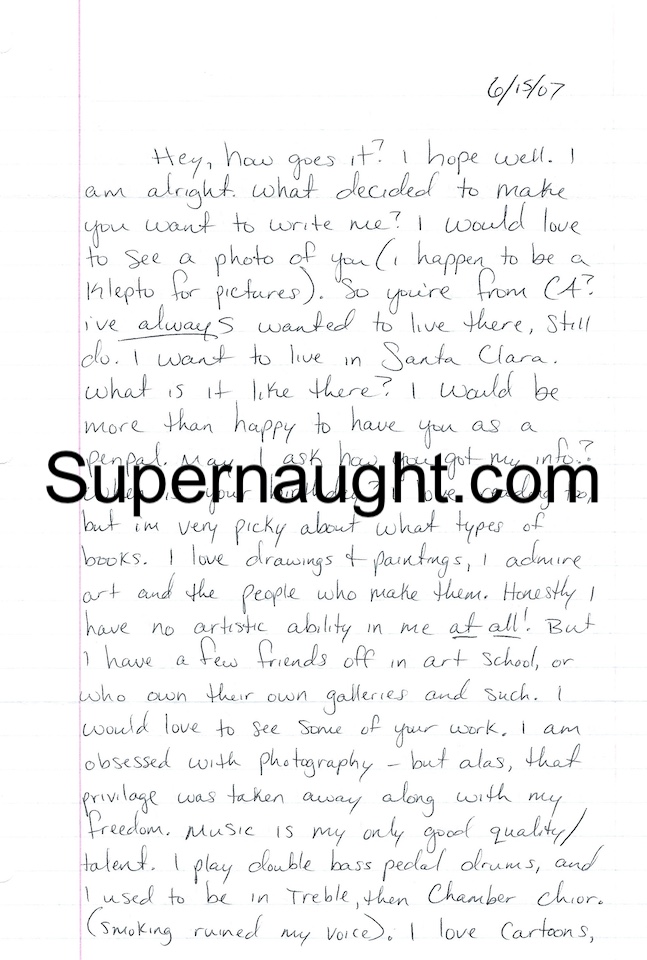 6/15/07
Hey, how goes it? I hope well. I
am alright. what decided to make
you want to write me? I would love
to see a photo of you (i happen to be a
klepto for pictures). So you're from CA?
i've always wanted to live there, still
do. I want to live in Santa Clara.
what is it like there? I would be
more than happy to have you as a
penpal. May I ask how you got my info?
Supernaught.com
your birthday? I love reading to
but im very picky about what types of
books. I love drawings & paintings, I admire
art and the people who make them. Honestly I
have no artistic ability in me at all! But
I have a few friends off in art school, or
who own their own galleries and such. I
would love to see some of your work. I am
obsessed with photography - but alas, that
privilage was taken away along with my
freedom. Music is my only good quality/
talent. I play double bass pedal drums, and
I used to be in Treble, then Chamber Chior.
(smoking ruined my voice). I love Cartoons,